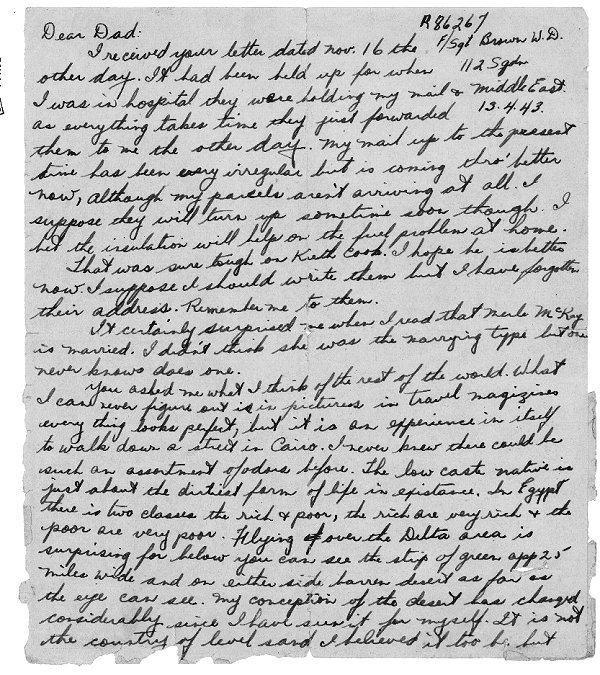 R86267
Dear Dad:
F/Sgt Brown W.D.
I received your letter dated nov. 16 the
112 Sqdn
other day. It had been held up for when
Middle East.
I was in hospital they were holding my mail &
13.4.43.
as everything takes time they just forwarded
them to me the other day. My mail up to the present
time has been very irregular but is coming thro' better
now, although my parcels aren't arriving at all. I
suppose they will turn up sometime soon though. I
bet the insulation will help on the fuel problem at home.
That was sure tough on Kieth Cook. I hope he is better
now. I suppose I should write them but I have forgotten
their address. Remember me to them.
It certainly surprised me when I read that Merle McKay
is married. I didn't think she was the marrying type but one
never knows does one.
You asked me what I think of the rest of the world. What
I can never figure out is in pictures in travel magizines
every thing looks perfect, but it is an experience in itself
to walk down a street in Cairo. I never knew there could be
such an assortment of odors before. The low caste native is
just about the dirtiest form of life in existance. In Egypt
there is two classes the rich & poor, the rich are very rich & the
poor are very poor. Flying over the Delta area is
surprising for below you can see the strip of green app 25
miles wide and on either side barren desert as far as
the eye can see. My conception of the desert has changed
considerably since I have seen it for myself. It is not
the country of level sand I believed it too be, but